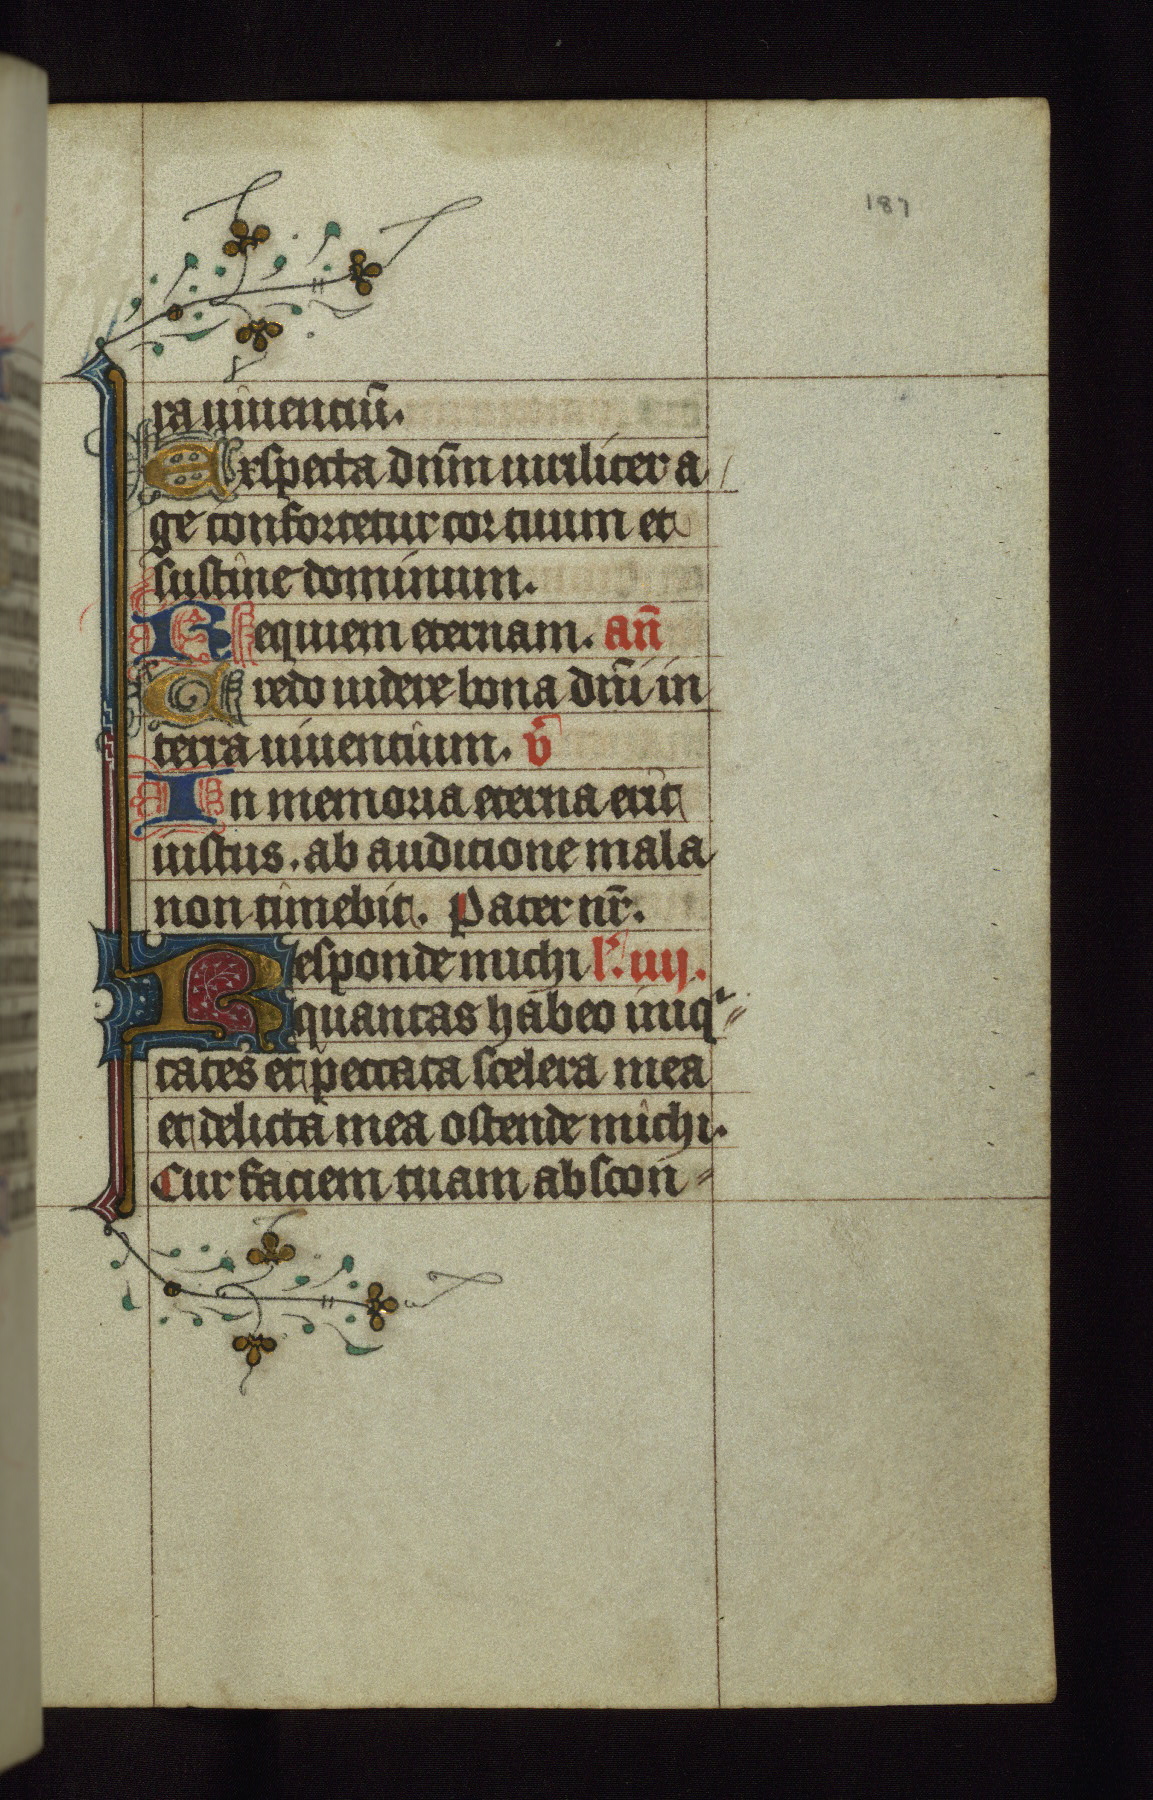 187
ra uiuentiū.
Exspecta dn̄m uiriliter a
ge confortetur cor tuum et
sustine dominum.
Requiem eternam. an̄
Credo uidere bona dn̄i in
terra uiuentium. v̄
In memoria eterna erit
iustus. ab auditione mala
non timebit. Pater nr̄.
Responde michi l'. iiij.
quantas habeo iniqⁱ
tates et peccata scelera mea
et delicta mea ostende michi.
Cur faciem tuam abscon